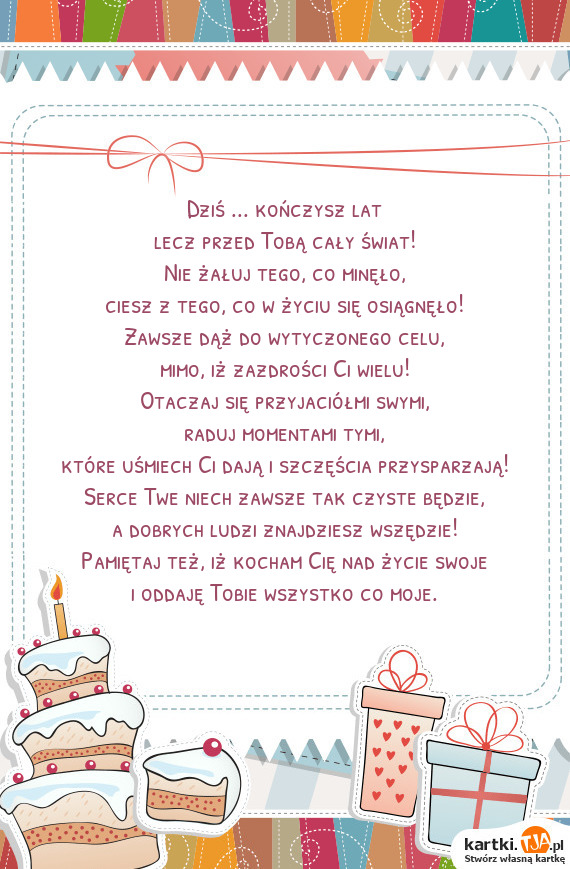 Dziś ... kończysz lat
lecz przed Tobą cały świat!
Nie żałuj tego, co minęło,
ciesz z tego, co w życiu się osiągnęło!
Zawsze dąż do wytyczonego celu,
mimo, iż zazdrości Ci wielu!
Otaczaj się przyjaciółmi swymi,
raduj momentami tymi,
które uśmiech Ci dają i szczęścia przysparzają!
Serce Twe niech zawsze tak czyste będzie,
a dobrych ludzi znajdziesz wszędzie!
Pamiętaj też, iż kocham Cię nad życie swoje
i oddaję Tobie wszystko co moje.
kartki.TJA.pl
Stwórz własną kartkę